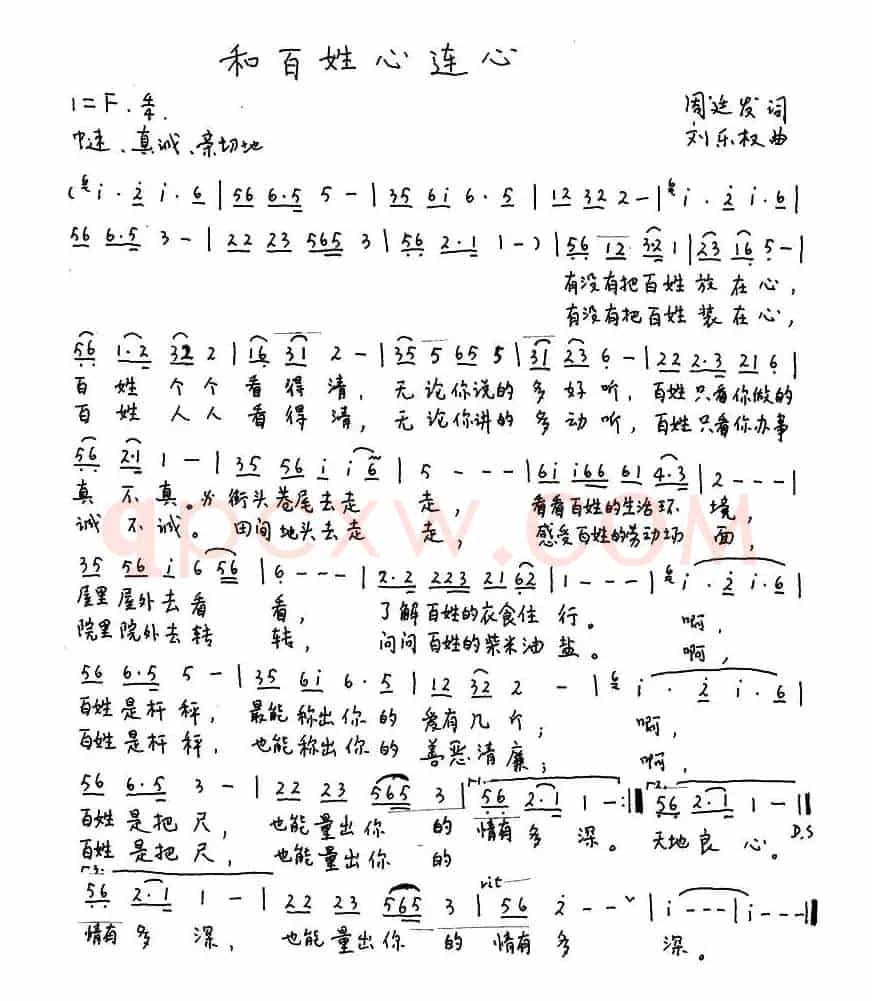 和百姓心连心
1=F. 4/4.
周廷发 词
中速、真诚、亲切地
刘乐权 曲
(6 i · 2 i · 6 | 56 6·5 5 - | 35 6i 6·5 | 12 32 2 - | 6 i · 2 i · 6 |
56 6·5 3 - | 22 23 565 3 | 56 2·1 1 - ) | 56 12 32 1 | 23 16 5 - |
有没有把百姓放在心，
有没有把百姓装在心，
56 1·2 32 2 | 16 31 2 - | 35 5 65 5 | 31 23 6 - | 22 2·3 21 6 |
百姓个个看得清，无论你说的多好听，百姓只看你做的
百姓人人看得清，无论你讲的多动听，百姓只看你办事
56 2·1 1 - | 35 56 i i 6 | 5 - - - | 6i i66 61 4·3 | 2 - - - |
真不真。 街头巷尾去走走，看看百姓的生活环境，
诚不诚。田间地头去走走，感受百姓的劳动场面，
qpcxw.COM
35 56 i 6 56 | 6 - - - | 2·2 223 21 62 | 1 - - - | 6 i · 2 i · 6 |
屋里屋外去看看，了解百姓的衣食住行。啊，
院里院外去转转，问问百姓的柴米油盐。啊，
56 6·5 5 - | 35 6i 6·5 | 12 32 2 - | 6 i · 2 i · 6 |
百姓是杆秤，最能称出你的爱有几个；啊，
百姓是杆秤，也能称出你的善恶清廉；啊，
56 6·5 3 - | 22 23 565 3 | 1. 56 2·1 1 - :|| 2. 56 2·1 1 - ||
百姓是把尺，也能量出你的情有多深。天地良心。 D.S
百姓是把尺，也能量出你的
3.
rit
56 2·1 1 - | 22 23 565 3 | 56 2 - - ˅ | i - - - | i - - - ||
情有多深，也能量出你的情有多深。